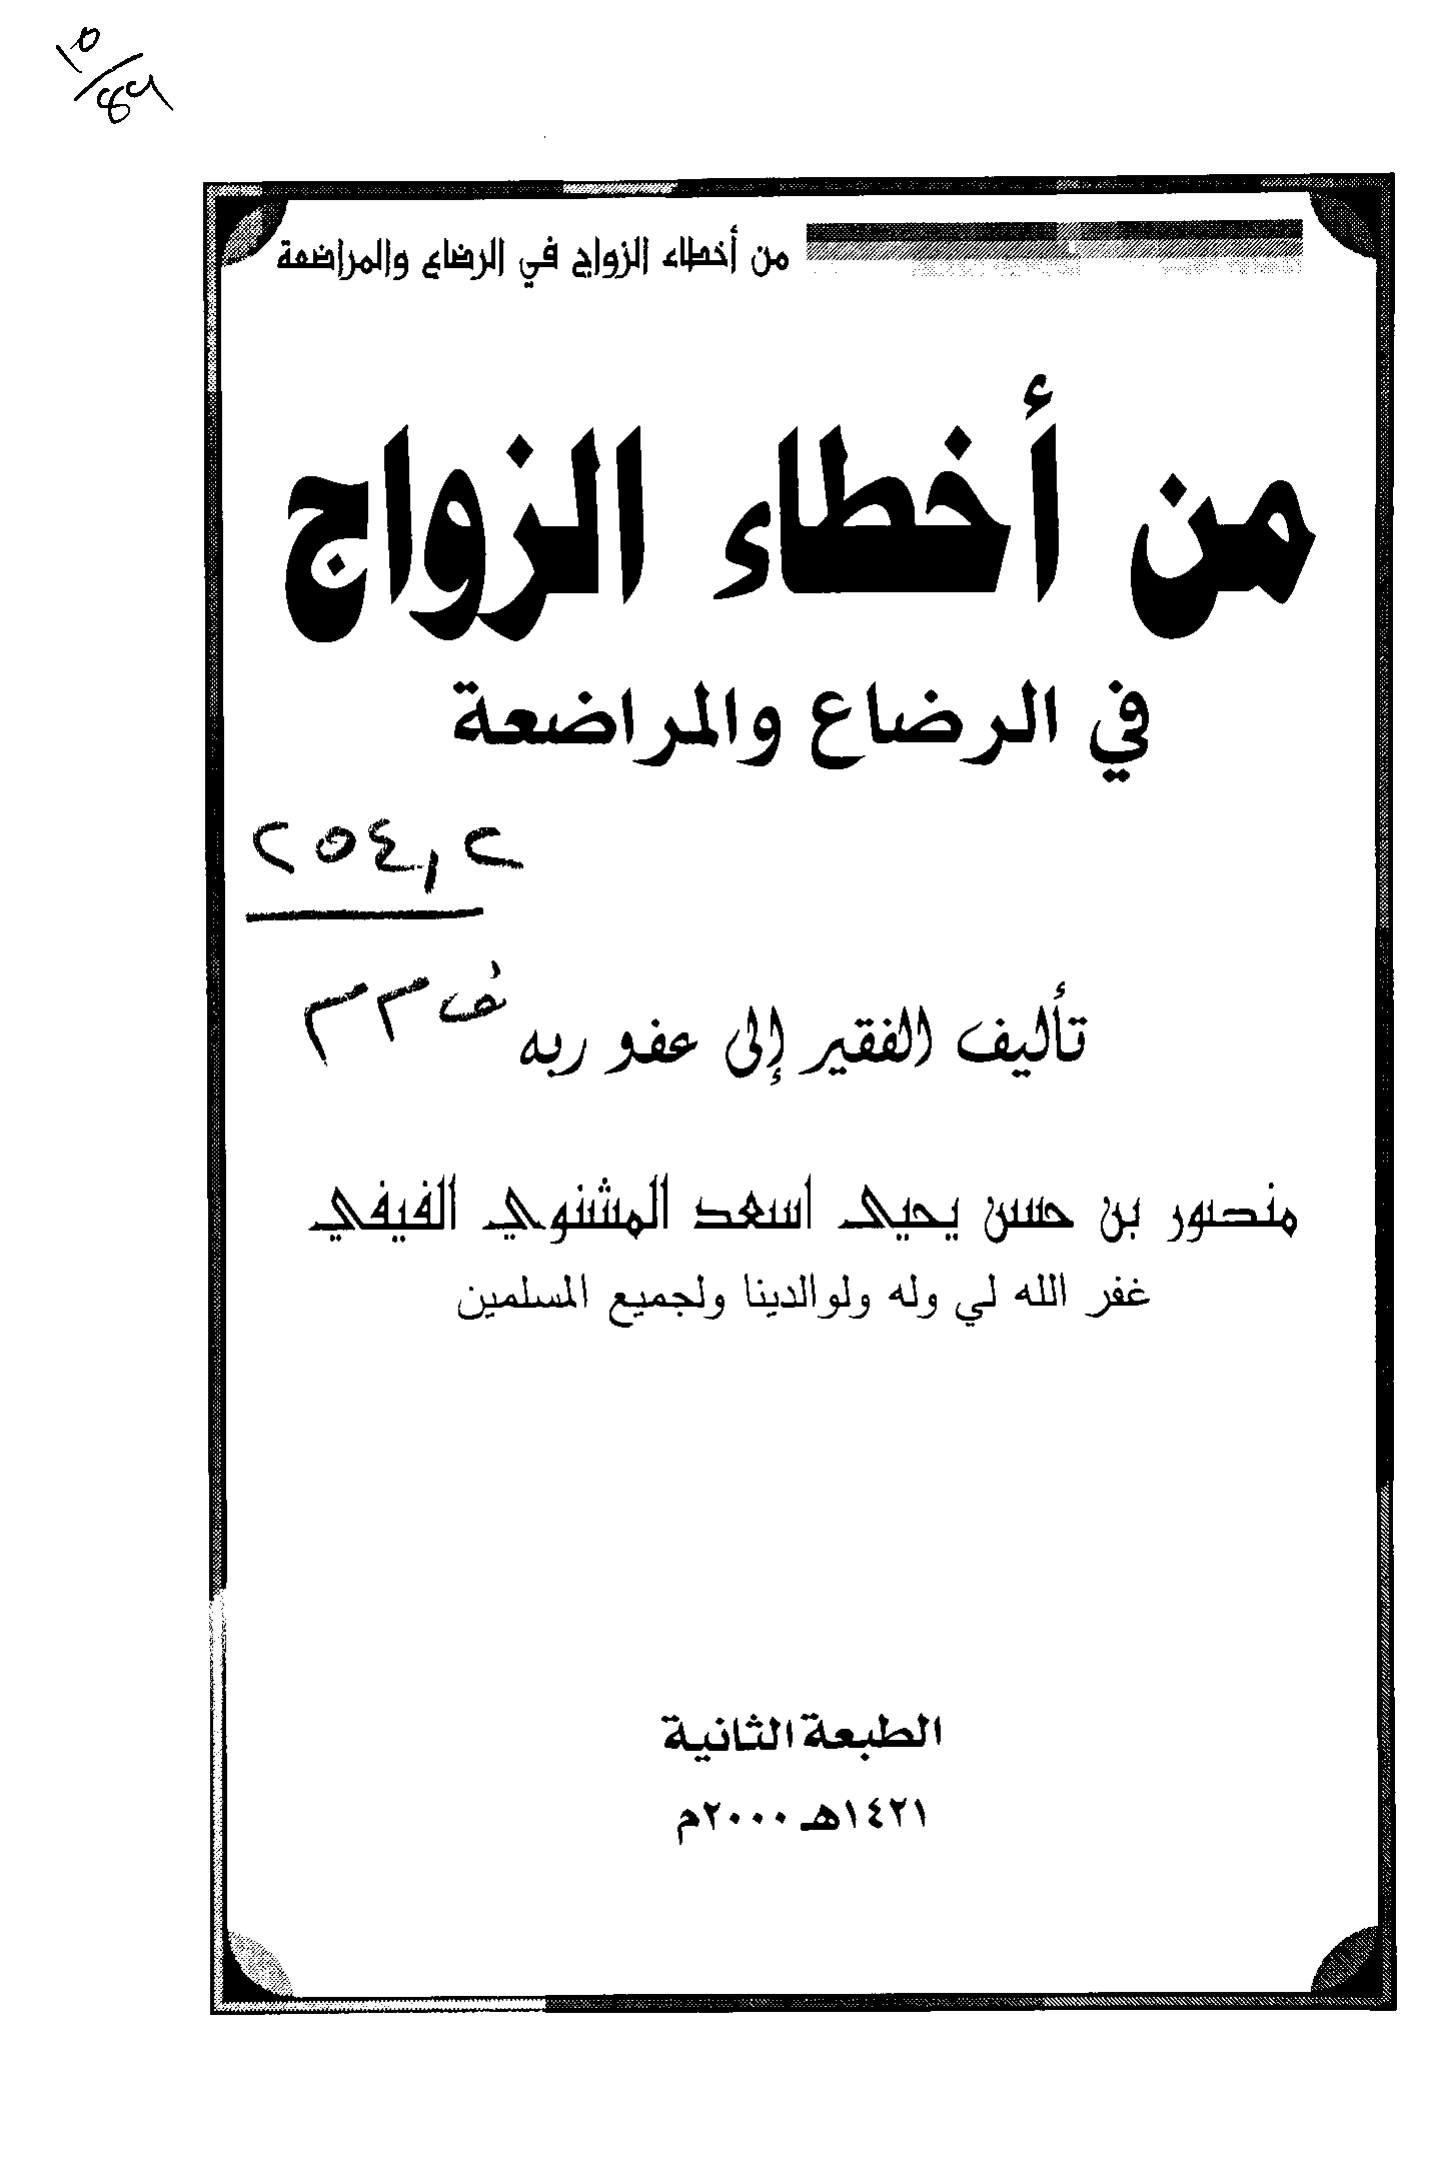 من أخطاء الزواج في الرضاع والمراضعة
من أخطاء الزواج
في الرضاع والمراضعة
٢٥٤,٢
تأليف الفقير إلى عفو ربه
منصور بن حسن يحيى اسعد المشنوي الفيفي
غفر الله لي وله ولوالدينا ولجميع المسلمين
الطبعة الثانية
١٤٢١هـ ٢٠٠٠م